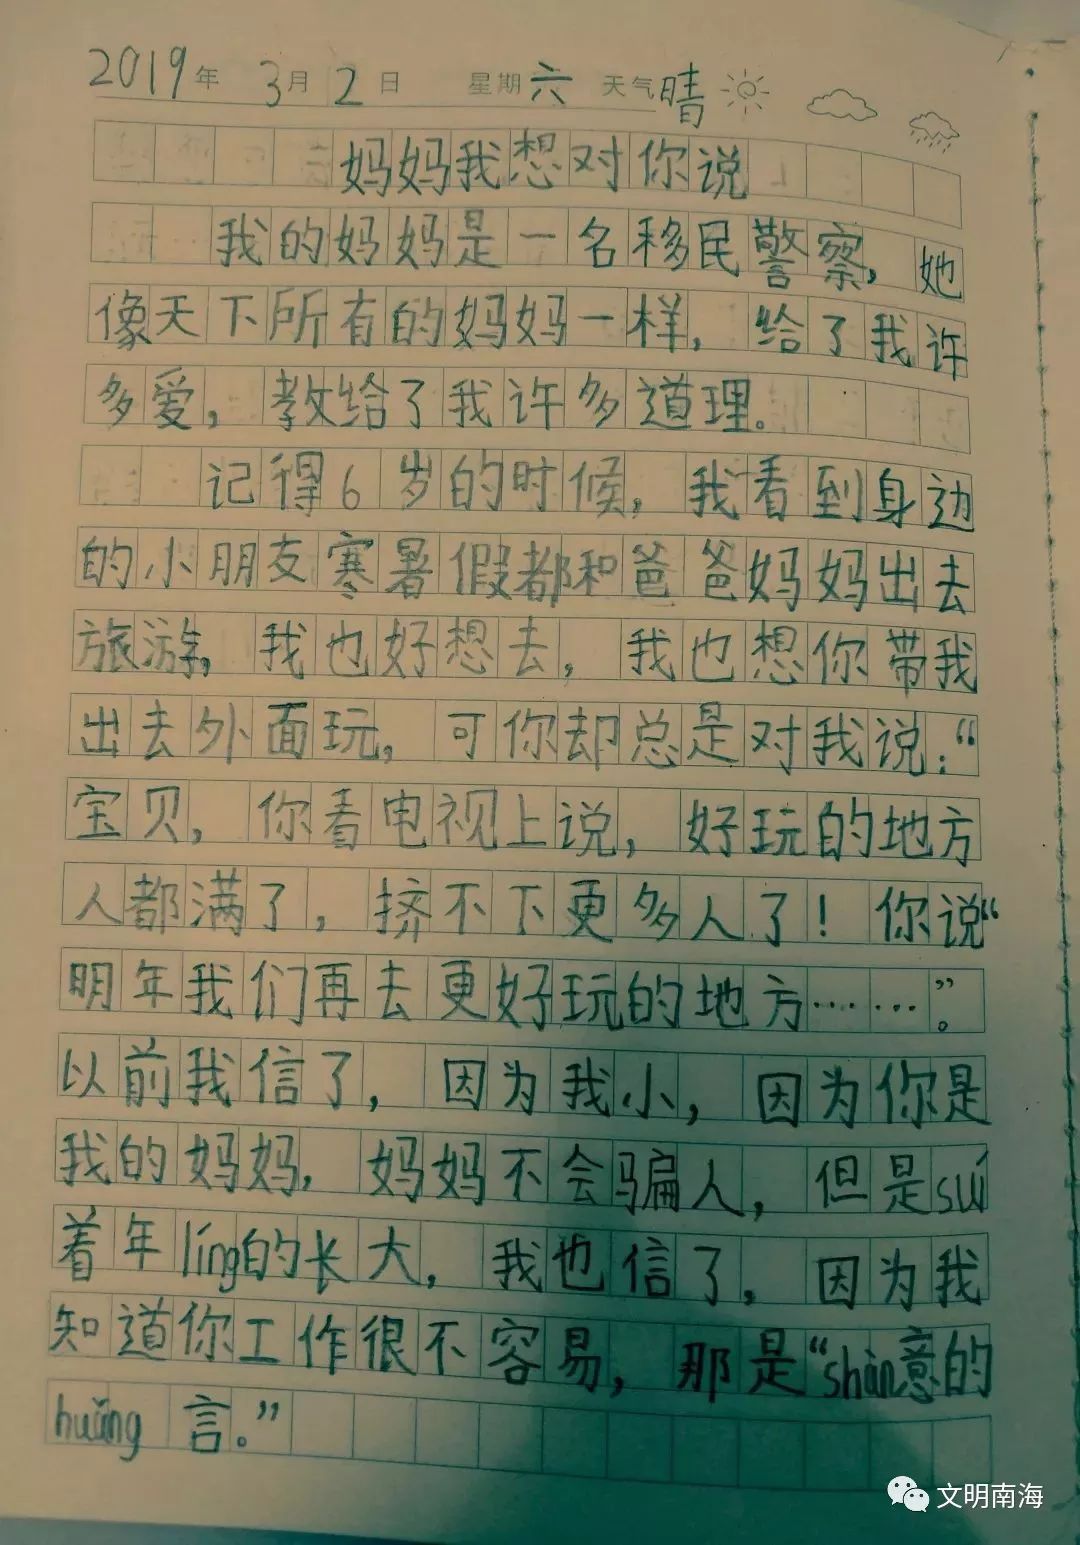 2019年 3月 2日 星期六 天气晴
妈妈我想对你说
我的妈妈是一名移民警察，她
像天下所有的妈妈一样，给了我许
多爱，教给了我许多道理。
记得6岁的时候，我看到身边
的小朋友寒暑假都和爸爸妈妈出去
旅游，我也好想去，我也想你带我
出去外面玩，可你却总是对我说：“
宝贝，你看电视上说，好玩的地方
人都满了，挤不下更多人了！你说“
明年我们再去更好玩的地方……。”
以前我信了，因为我小，因为你是
我的妈妈，妈妈不会骗人，但是suí
着年líng的长大，我也信了，因为我
知道你工作很不容易，那是“shàn意的
huǎng言。”
文明南海